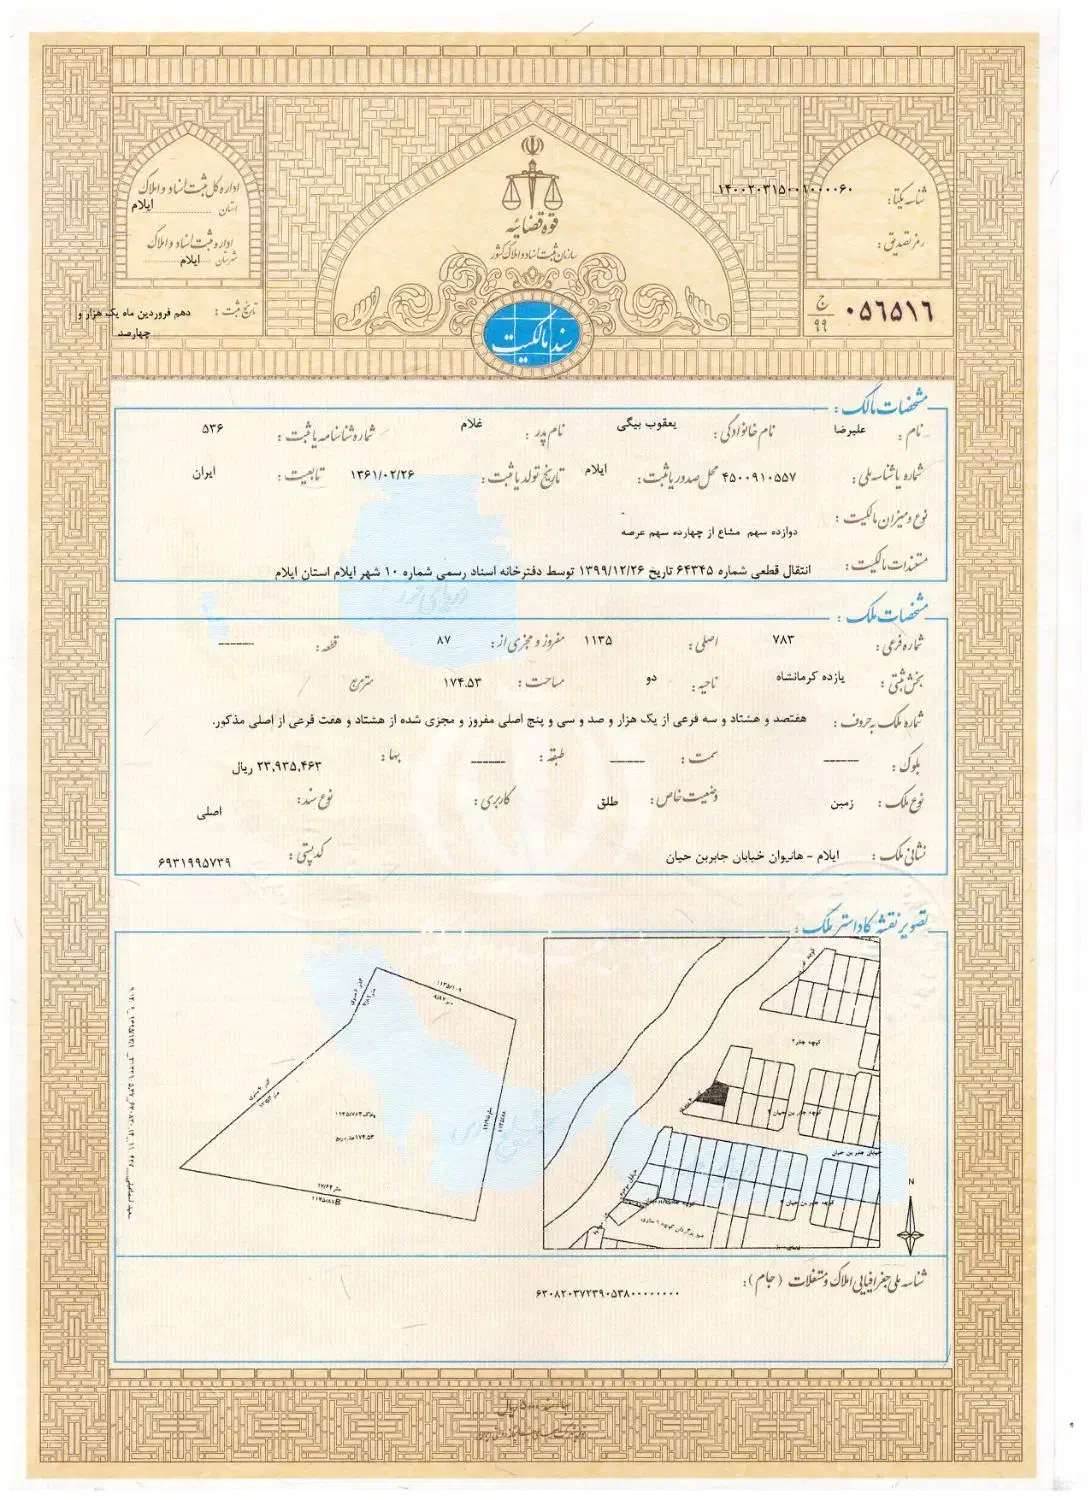 قوه قضائیه
سازمان ثبت اسناد و املاک کشور
شناسه یکتا: ۱۴۰۰۲۰۳۱۵۰۰۱۰۰۰۰۶۰
رمز تصدیق:
۰۵۶۵۱۶ ج ۹۹
اداره کل ثبت اسناد و املاک
استان ایلام
اداره ثبت اسناد و املاک
شهرستان ایلام
تاریخ ثبت: دهم فروردین ماه یک هزار و
چهارصد
سند مالکیت
مشخصات مالک:
نام: علیرضا نام خانوادگی: یعقوب بیگی نام پدر: غلام شماره شناسنامه یا ثبت: ۵۳۶
شماره یا شناسه ملی: ۴۵۰۰۹۱۰۵۵۷ محل صدور یا ثبت: ایلام تاریخ تولد یا ثبت: ۱۳۶۱/۰۲/۲۶ تابعیت: ایران
نوع و میزان مالکیت:
دوازده سهم مشاع از چهارده سهم عرصه
مستندات مالکیت: انتقال قطعی شماره ۶۴۳۴۵ تاریخ ۱۳۹۹/۱۲/۲۶ توسط دفترخانه اسناد رسمی شماره ۱۰ شهر ایلام استان ایلام
مشخصات ملک:
شماره فرعی: ۷۸۳ اصلی: ۱۱۳۵ مفروز و مجزی از: ۸۷ قطعه: ------
بخش ثبتی: یازده کرمانشاه ناحیه: دو مساحت: ۱۷۴.۵۳ متر مربع
شماره ملک به حروف: هفتصد و هشتاد و سه فرعی از یک هزار و صد و سی و پنج اصلی مفروز و مجزی شده از هشتاد و هفت فرعی از اصلی مذکور.
بلوک: ------ سمت: ------ طبقه: ------ بها: ۲۳,۹۳۵,۴۶۳ ریال
نوع ملک: زمین وضعیت خاص: طلق کاربری: نوع سند: اصلی
نشانی ملک: ایلام - هانیوان خیابان جابربن حیان کد پستی: ۶۹۳۱۹۹۵۷۳۹
تصویر نقشه کاداستر ملک:
پلاک ۱۱۳۵/۷۸۳
۱۷۴.۵۳ متر مربع
N
شناسه ملی جغرافیایی املاک و مستغلات (جام):
۶۳۰۸۲۰۳۷۲۳۹۰۵۳۸۰۰۰۰۰۰۰۰